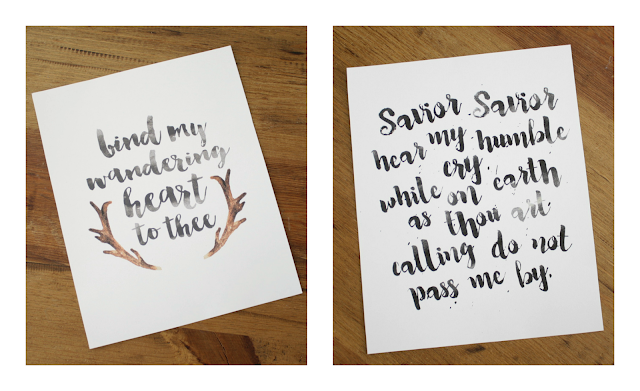 bind my
wandering
heart
to thee
Savior Savior
hear my humble
cry
while on earth
as thou art
calling do not
pass me by.